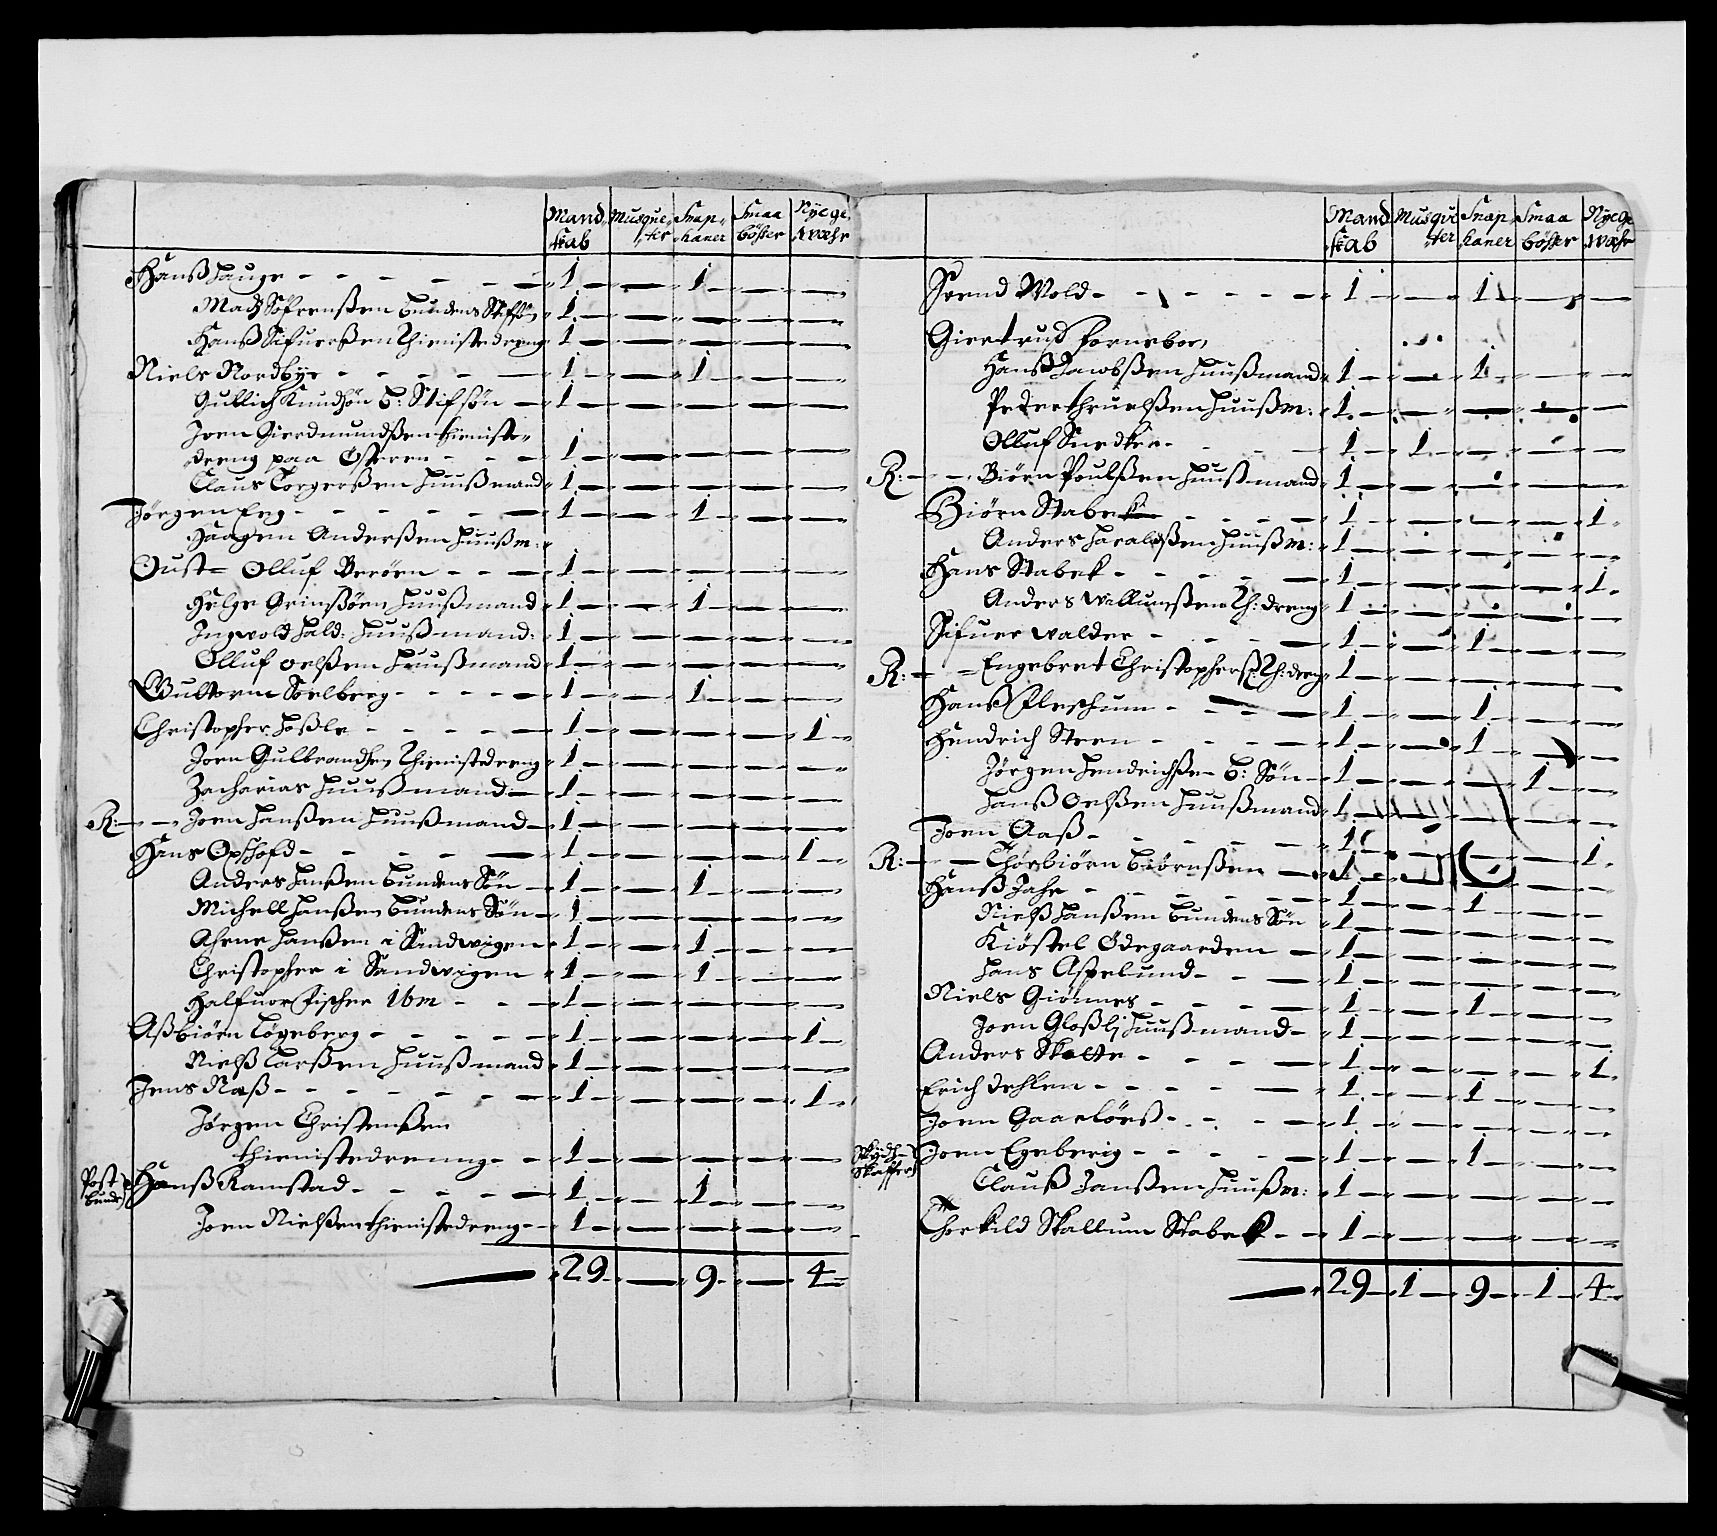 Mand skab Musque ter Snap haner Smaa bösser Nye ge wæhr
Hanß Hauge - - - - - 1 — 1 — —
Madz Söfrenßen bundens Stifsön 1 — — — —
Hanß Sifuerßen thienistedreng 1 — — — —
Niels Nordbye - - - - 1 — 1 — —
Gullich Knudsön b: Stifsön — 1 — — — —
Joen Gierdmundßen thieniste
dreng paa Österen - - - 1 — — — —
Claus Torgerßen Huußmand 1 — — — —
Jörgen Eeg - - - - - 1 — 1 — —
Haagen Anderßen Huußm:
Oust= Olluf Beröen - - — 1 — — — —
Helge Grimßöen Huußmand 1 — 1 — —
Ingwold Hald: Huußmand: 1 — — — —
Olluf Oelßen Huußmand 1 — — — —
Guttorm Soelberg - - - - 1 — 1 — —
Christopher Hoßle - - - - 1 — — — 1
Joen Gulbrandsen thienistedreng 1 — — — —
Zacharias Huußmand — 1 — — — —
R: — Joen Hanßen Huußmand — 1 — — — —
Hans Opshofd - - - - 1 — — — 1
Anders Hanßen bundens Sön — 1 — 1 — —
Michell Hanßen bundens Sön — 1 — — — —
Afrne Hanßen i Sandwigen 1 — 1 — —
Christopher i Sandwigen 1 — 1 — —
Halfuor Fischer ibm - - — 1 — — — —
Aßbiörn Lögeberg - - - - 1 — — — 1
Nielß Larßen Huußmand 1 — — — —
Jens Næß - - - - - 1 — — — 1
Jörgen Christenßen
thienistedrenng - - 1 — — — —
Post bunde Hanß Ramstad - - - - 1 — 1 — —
Joen Nielßen thienistedreng - 1 — — — —
29 — 9 — 4
Mand skab Musque ter Snap haner Smaa bösser Nye ge wæhr
Svend Wold - - - - - 1 — 1 — —
Giertrud Forneboe
Hanß Jacobßen Huußmand 1 — 1 — —
Peter Thruelßen Huußm: 1 — — — —
Olluf Snedker - - - 1 1 — — —
R: — Biörn Poulßen Huußmand 1 — — — —
Biörn Stabek - - - 1 — — — 1
Anders Haraldßen Huußm: 1 — — — —
Hans Stabek - - - - 1 — — — 1
Anders Wellumßen th: dreng 1 — — — —
Sifuer Walder - - - 1 — 1 — —
R: — Engebret Christopherß: th: dreng 1 — — — —
Hanß Fleschum - - - 1 — 1 — —
Hendrich Steen - - - - 1 — 1 — —
Jörgen Hendrichße b: Sön — 1 — — 1 —
Hanß Oelßen Huußmand 1 — — — —
Joen Aaß - - - - - 1 — — — 1
R: — Thorbiörn Biörnßen — 1 — — — —
Hanß Jahr - - - - - 1 — 1 — —
Nielß Hanßen bundens Sön 1 — — — —
Kiöstel Ödegaarden — 1 — — — —
Hans Aspelund - - — 1 — — — —
Niels Giönnes - - - - 1 — 1 — —
Joen Gloßli Huußmand — 1 — — — —
Anders Skatte - - - 1 — — — 1
Erich Dehlen - - - - 1 — 1 — —
Joen Gaarlöes - - - - 1 — — — —
Skydz- Skaffer Joen Egeberig - - - - 1 — 1 — —
Clauß Janßen Huußm: 1 — — — —
Thorkild Skallum Stabek - — 1 — — — —
29 1 9 1 4